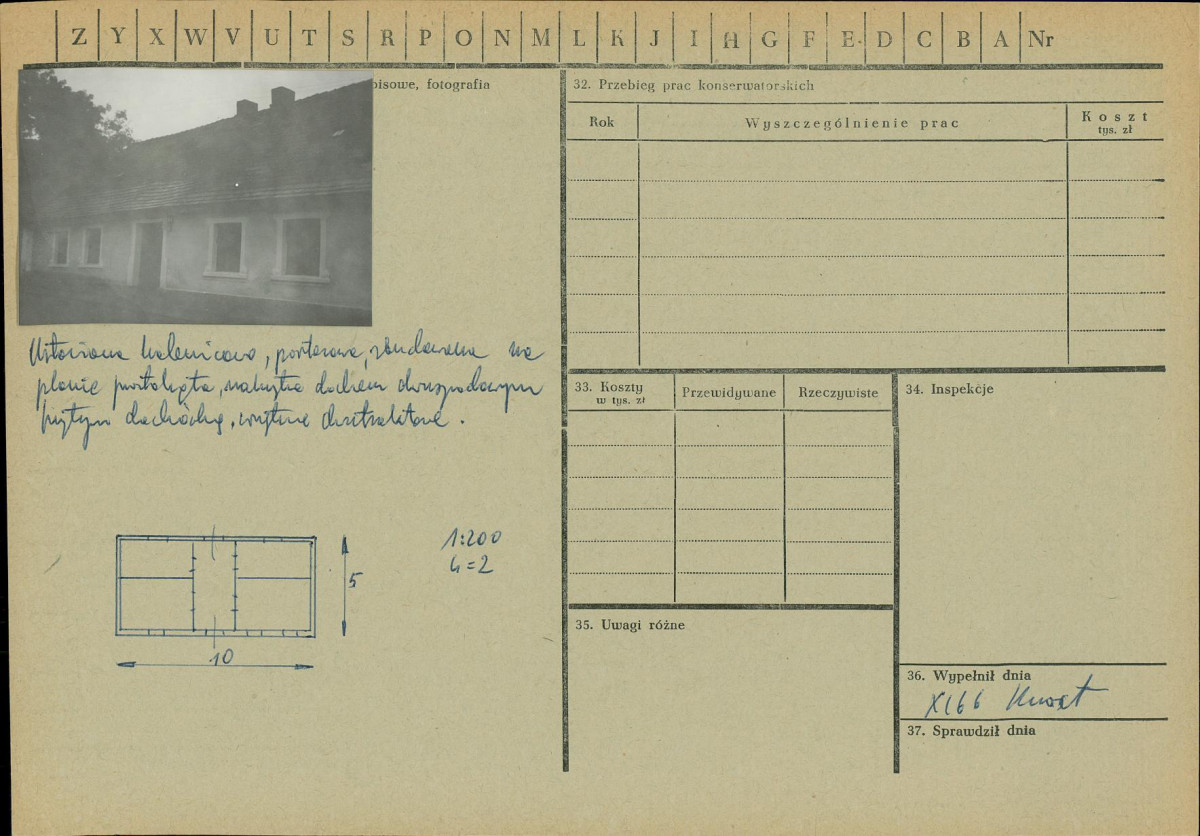 Z Y X W V U T S R P O N M L K J I H G F E D C B A Nr
pisowe, fotografia
32. Przebieg prac konserwatorskich
Rok
Wyszczególnienie prac
Koszt
tys. zł
parterowa, zbudowana na
planie prostokąta, nakryta dachem dwuspadowym
krytym dachówką, wnętrze dwutraktowe.
1:200
h=2
5
10
33. Koszty
w tys. zł
Przewidywane
Rzeczywiste
34. Inspekcje
35. Uwagi różne
36. Wypełnił dnia
XI 66
37. Sprawdził dnia